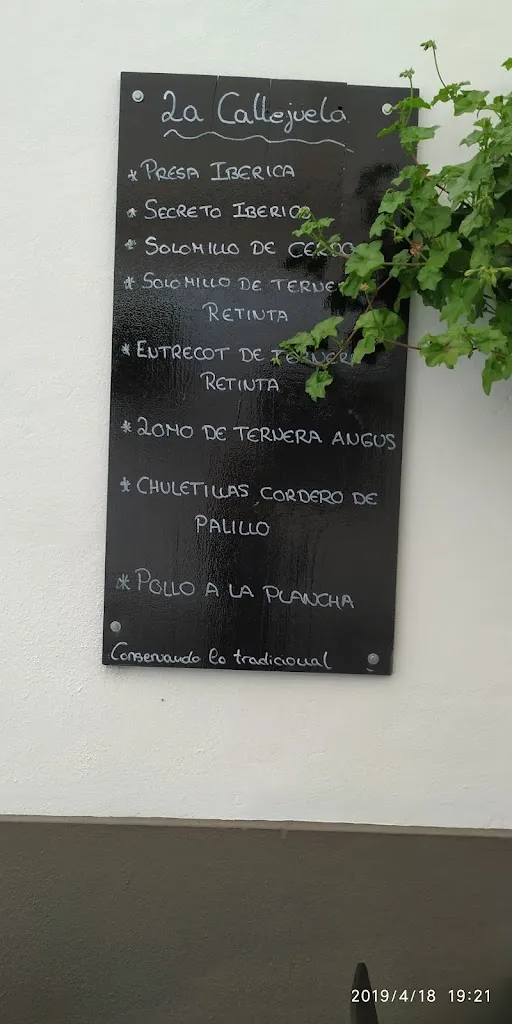 La Callejuela
* PRESA IBERICA
* SECRETO IBERICO
* SOLOMILLO DE CERDO
* SOLOMILLO DE TERNERA
RETINTA
* ENTRECOT DE TERNERA
RETINTA
* LOMO DE TERNERA ANGUS
* CHULETILLAS CORDERO DE
PALILLO
* POLLO A LA PLANCHA
Conservando lo tradicional
2019/4/18 19:21